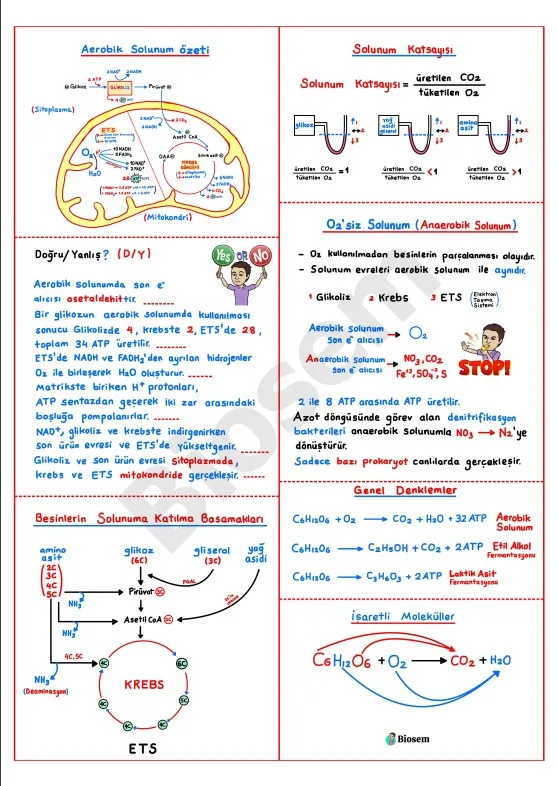 Aerobik Solunum özeti
2 ATP
2NAD⁺
2NADH
Glikoz
GLİKOLİZ
Pirüvat
(Sitoplazma)
ETS
2NAD⁺
2NADH
2CO₂
Asetil CoA
O₂
10NADH
2FADH₂
H₂O
10NAD⁺
2FAD⁺
OAA
Sitrik asit
KREBS
(Mitokondri)
Doğru/Yanlış? (D/Y)
Yes OR NO
Aerobik solunumda son e⁻
alıcısı asetaldehittir. ........
Bir glikozun aerobik solunumda kullanılması
sonucu Glikolizde 4, krebste 2, ETS'de 28,
toplam 34 ATP üretilir. .......
ETS'de NADH ve FADH₂'den ayrılan hidrojenler
O₂ ile birleşerek H₂O oluşturur. ......
Matrikste biriken H⁺ protonları,
ATP sentazdan geçerek iki zar arasındaki
boşluğa pompalanırlar. .......
NAD⁺, glikoliz ve krebste indirgenirken
son ürün evresi ve ETS'de yükseltgenir. ......
Glikoliz ve son ürün evresi Sitoplazmada,
krebs ve ETS mitokondride gerçekleşir. ......
Besinlerin Solunuma Katılma Basamakları
amino asit
glikoz
gliserol
yağ asidi
(6C)
(3C)
2C
3C
4C
5C
PGAL
Pirüvat 3C
NH₃
Asetil CoA 2C
NH₃
4C, 5C
4C
6C
NH₃
(Deaminasyon)
KREBS
4C
5C
4C
4C
ETS
Solunum Katsayısı
Solunum Katsayısı = üretilen CO₂
tüketilen O₂
glikoz
yağ asidi gliserol
amino asit
1
2
3
1
2
3
1
2
3
üretilen CO₂
tüketilen O₂
=1
üretilen CO₂
tüketilen O₂
<1
üretilen CO₂
tüketilen O₂
>1
O₂'siz Solunum (Anaerobik Solunum)
- O₂ kullanılmadan besinlerin parçalanması olayıdır.
- Solunum evreleri aerobik solunum ile aynıdır.
1 Glikoliz 2 Krebs 3 ETS (Elektron Taşıma Sistemi)
Aerobik solunum
son e⁻ alıcısı
O₂
Anaerobik solunum
son e⁻ alıcısı
NO₃, CO₂
Fe⁺³, SO₄⁻, S
STOP!
2 ile 8 ATP arasında ATP üretilir.
Azot döngüsünde görev alan denitrifikasyon
bakterileri anaerobik solunumla NO₃ → N₂'ye
dönüştürür.
Sadece bazı prokaryot canlılarda gerçekleşir.
Genel Denklemler
C₆H₁₂O₆ + O₂ → CO₂ + H₂O + 32 ATP Aerobik Solunum
C₆H₁₂O₆ → C₂H₅OH + CO₂ + 2 ATP Etil Alkol Fermantasyonu
C₆H₁₂O₆ → C₃H₆O₃ + 2 ATP Laktik Asit Fermantasyonu
İşaretli Moleküller
C₆H₁₂O₆ + O₂ → CO₂ + H₂O
Biosem
Biosem